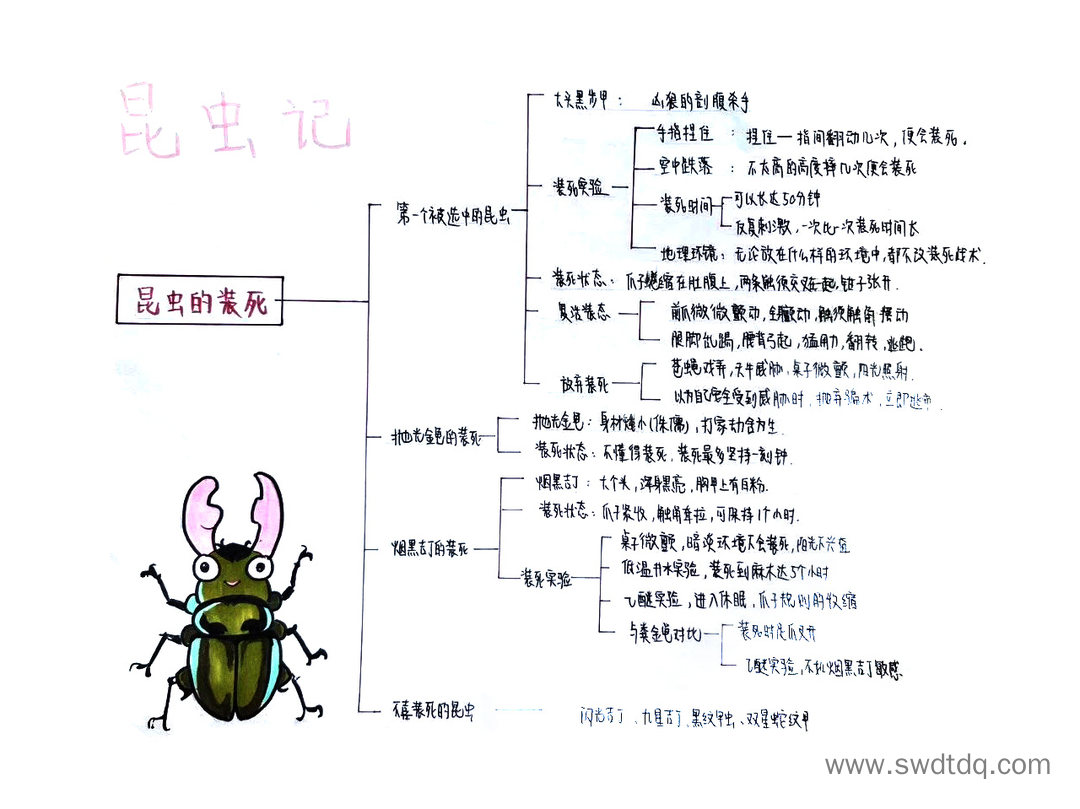 昆虫记
昆虫的装死
第一个被选中的昆虫
大头黑步甲： 凶狠的剖腹杀手
装死实验
手指捏住 ： 捏住一指间翻动几次，便会装死.
空中跌落 ： 不太高的高度摔几次便会装死
装死时间
可以长达50分钟
反复刺激，一次比一次装死时间长
地理环镜：无论放在什么样的环境中，都不改装死战术.
装死状态：爪子蜷缩在肚腹上，两条触须交叉在一起，钳子张开.
复活状态
前爪微微颤动，全颤动，触须触角摆动
腿脚乱踢，腰背弓起，猛用力，翻转，逃跑.
放弃装死
苍蝇戏弄，天牛威胁，桌子微颤，阳光照射.
以为自己安全受到威胁时，抛弃骗术，立即逃命.
抛光金龟的装死
抛光金龟：身材矮小(侏儒)，打家劫舍为生.
装死状态：不懂得装死，装死最多坚持一刻钟.
烟黑吉丁的装死
烟黑吉丁：大个头，浑身黑亮，胸甲上有白粉.
装死状态：爪子紧收，触角耷拉，可保持1个小时.
装死实验
桌子微颤，暗淡环境不会装死，阳光下兴奋
低温井水实验，装死到麻木达5个小时
乙醚实验，进入休眠，爪子规则的收缩
与粪金龟对比
装死时足爪叉开
乙醚实验，不比烟黑吉丁敏感.
不喜装死的昆虫
闪光吉丁、九星吉丁、黑纹甲虫、双星蛇纹甲
www.swdtdq.com